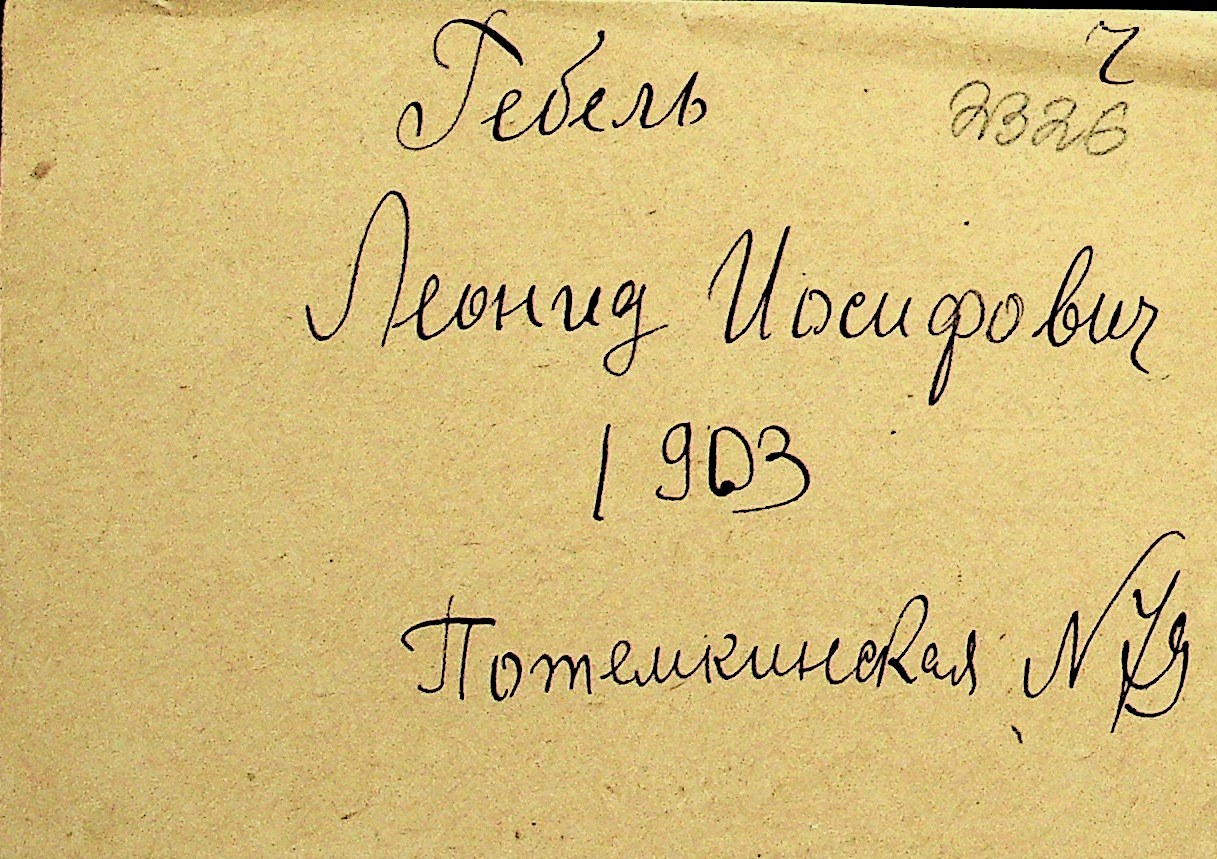 Гебель
2326
Леонид Иосифович
1903
Потемкинская N